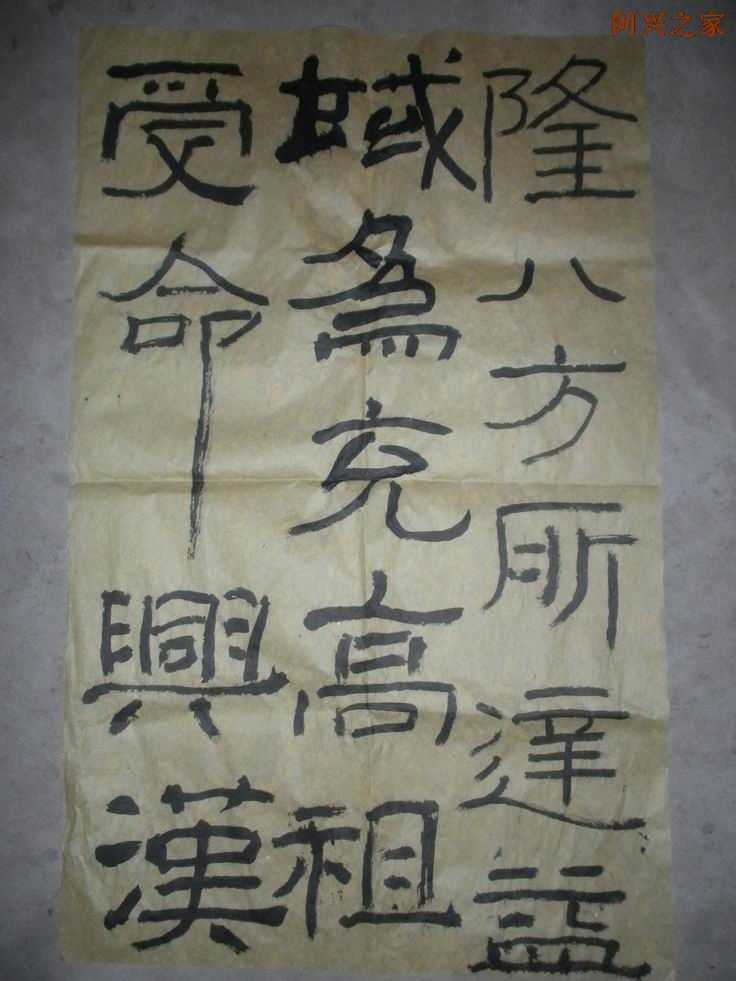 阿兴之家
隆八方所達益
域為充高祖
受命興漢